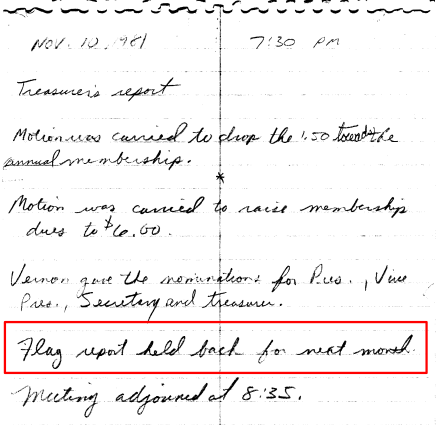 NOV. 10, 1981 7:30 PM
Treasurer's report
Motion was carried to drop the 1.50 towards the
annual membership.
*
Motion was carried to raise membership
dues to $6.00.
Vernon gave the nominations for Pres., Vice
Pres., Secretary and treasurer.
Flag report held back for next month.
Meeting adjourned at 8:35.